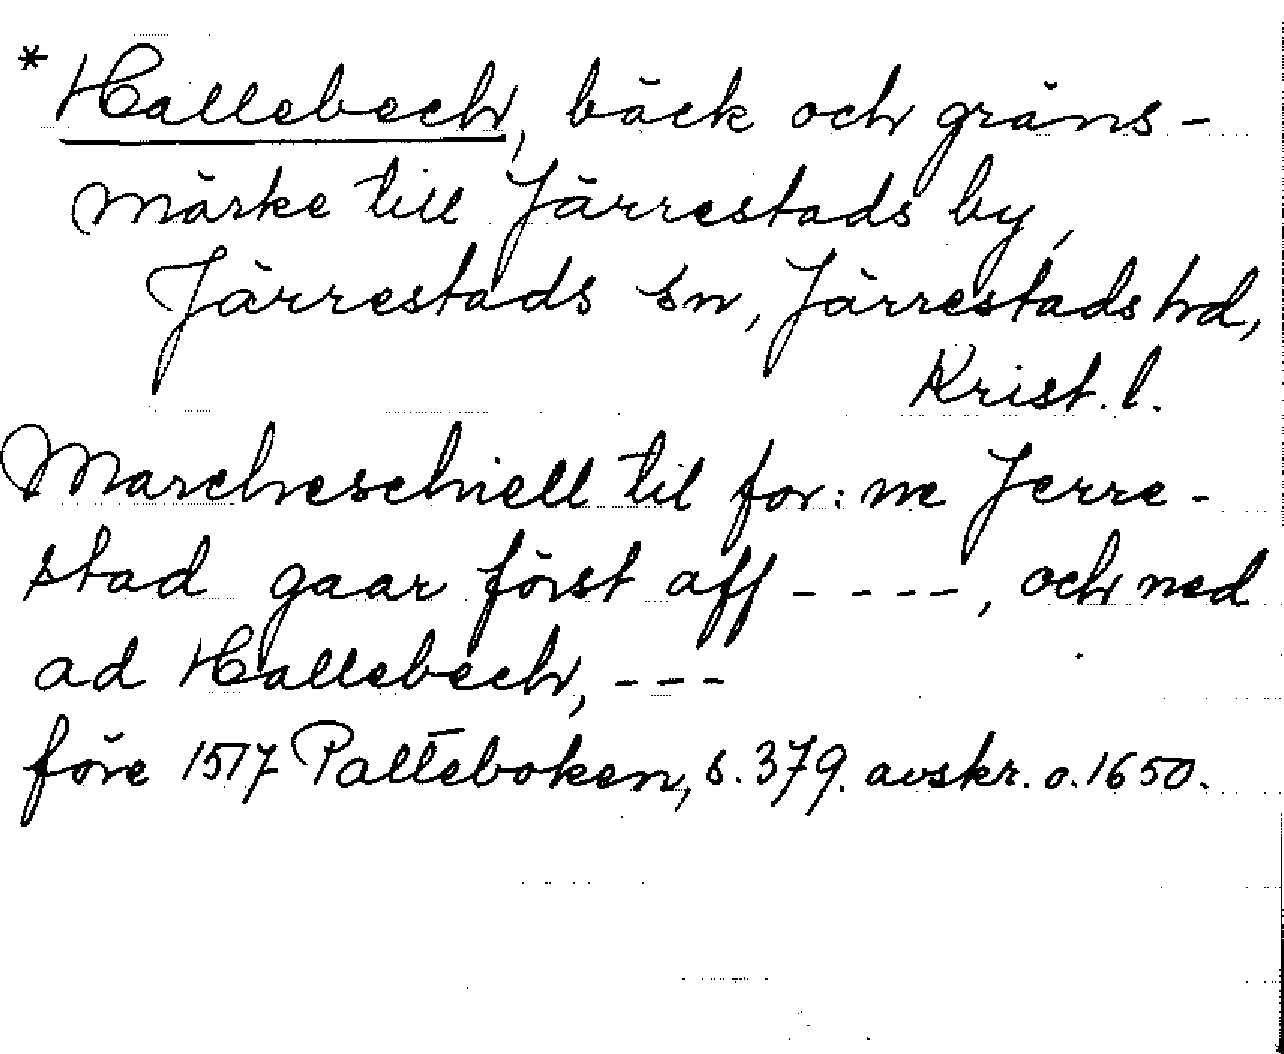 * Hallebech, bäck och gräns-
märke till Järrestads by,
Järrestads sn, Järrestads hd,
Krist. l.
Marcheschiell til for: ne Jerre-
stad gaar först aff ----, och ned
ad Hallebech, ---
före 1517 Palteboken, s. 379. avskr. o. 1650.